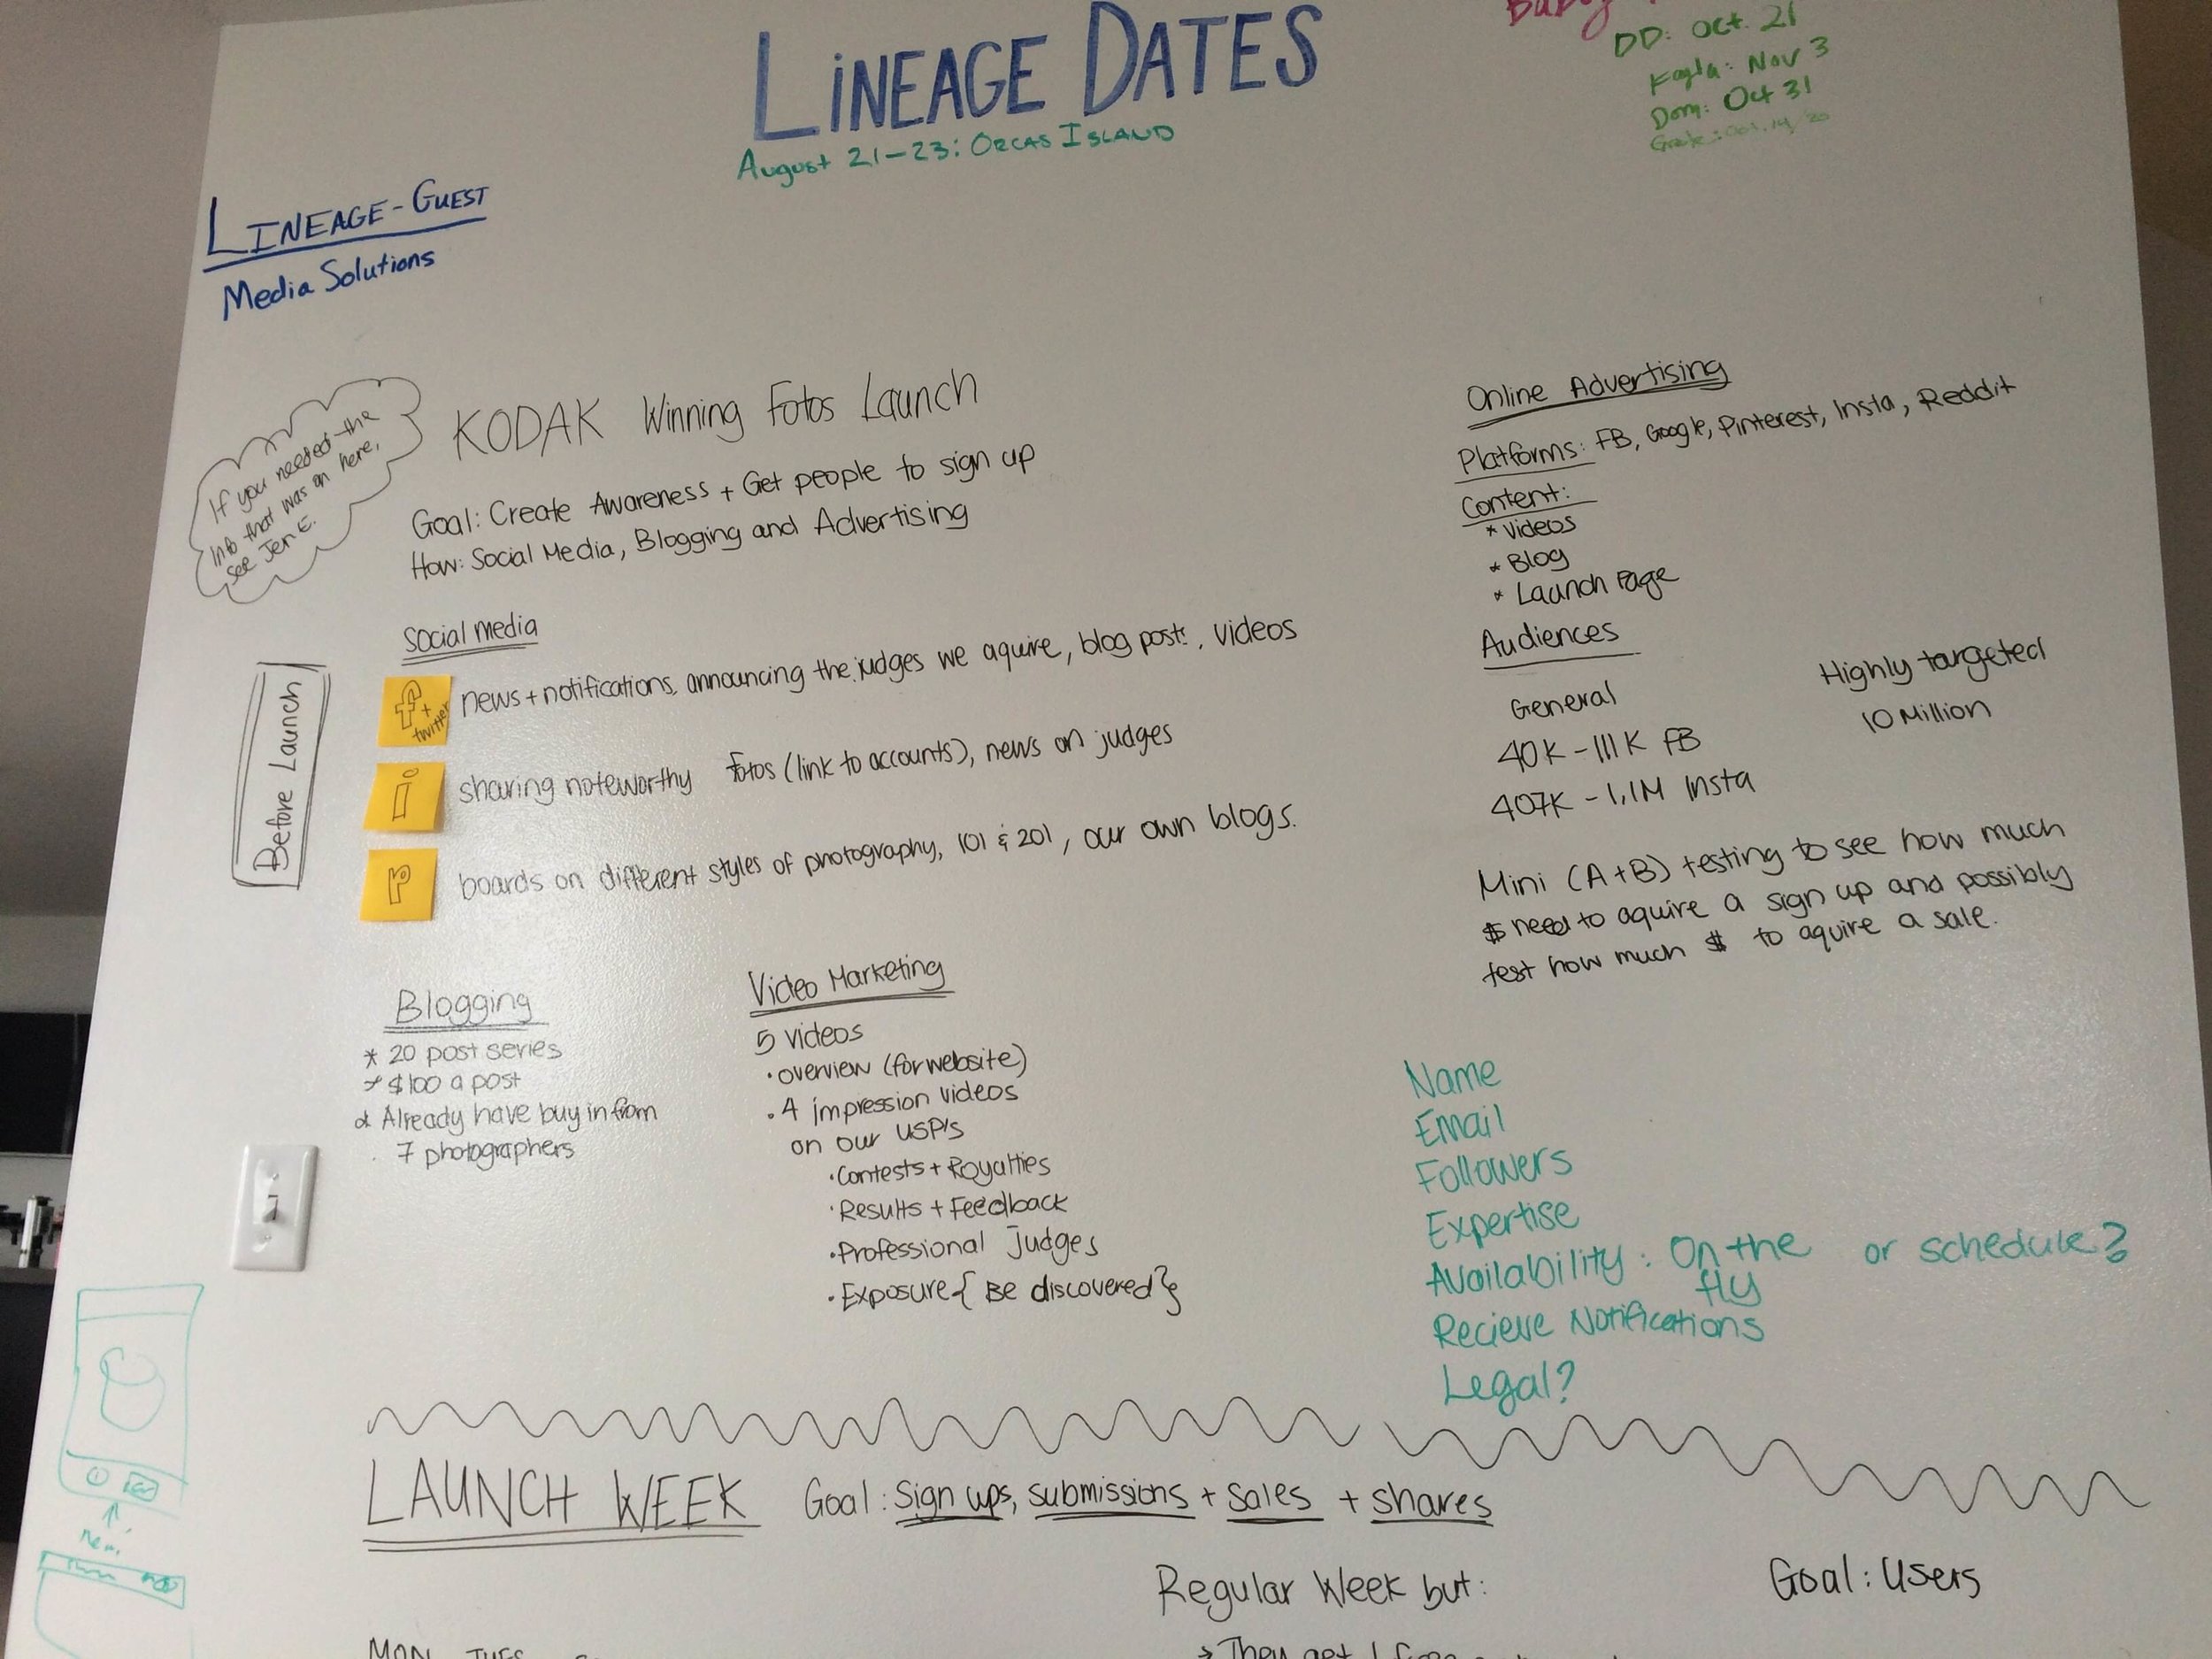 LiNEAGE DATES
August 21-23: ORCAS ISLAND
DD: Oct. 21
Kayla: Nov 3
Dom: Oct 31
LINEAGE-GUEST
Media Solutions
If you needed the
info that was on here,
see Jen E.
KODAK Winning Fotos Launch
Goal: Create Awareness + Get people to sign up
How: Social Media, Blogging and Advertising
Before Launch
Social media
f + twitter
news + notifications, announcing the judges we aquire, blog posts, videos
i
sharing noteworthy fotos (link to accounts), news on judges
P
boards on different styles of photography, 101 & 201, our own blogs.
Blogging
* 20 post series
* $100 a post
* Already have buy in from
7 photographers
Video Marketing
5 videos
• overview (for website)
• 4 impression videos
on our USP's
• Contests + Royalties
• Results + Feedback
• Professional judges
• Exposure { Be discovered }
Online Advertising
Platforms: FB, Google, Pinterest, Insta, Reddit
Content:
* Videos
* Blog
* Launch Page
Audiences
General
40K - 111K FB
407K - 1,1M Insta
Highly targeted
10 Million
Mini (A+B) testing to see how much
$ need to aquire a sign up and possibly
test how much $ to aquire a sale.
Name
Email
Followers
Expertise
Availability: On the fly or schedule?
Recieve Notifications
Legal?
LAUNCH WEEK Goal: Sign ups, submissions + sales + shares
Regular Week but:
Goal: Users
MON TUES
→ They get 1 free